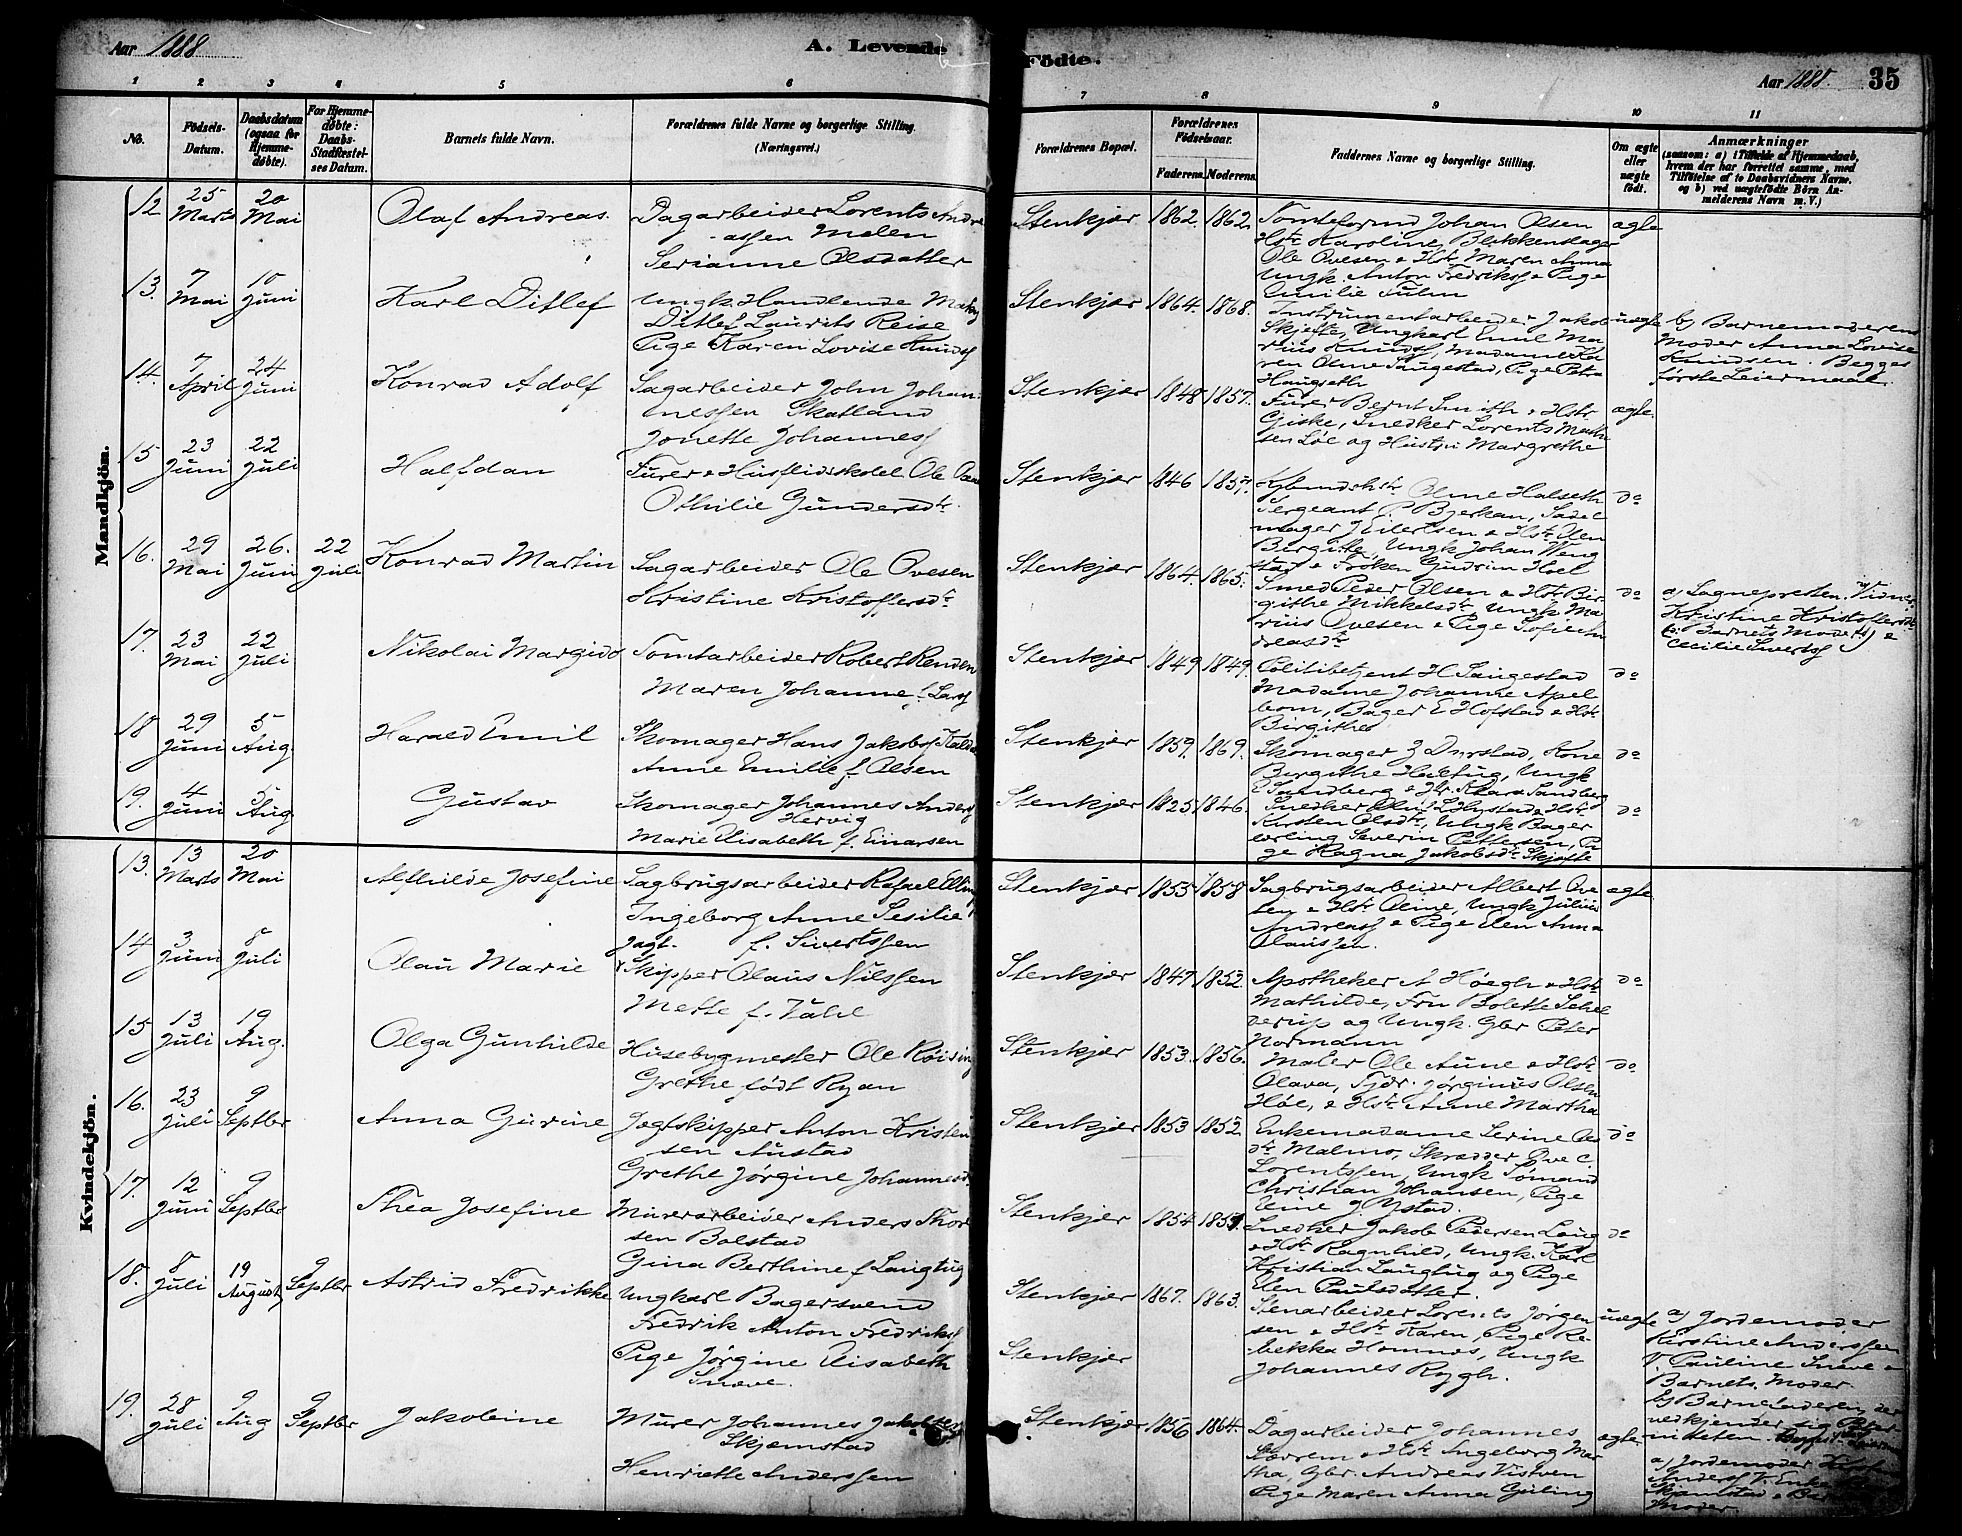 Aar 1888
A. Levende Födte.
Aar 1888.
35
1 2 3 4 5 6 7 8 9 10 11
No.
Födsels-Datum.
Daabsdatum (ogsaa for Hjemme-døbte).
For Hjemme-døbte: Daabs-Stadfæstelses Datum.
Barnets fulde Navn.
Forældrenes fulde Navne og borgerlige Stilling. (Næringsvei.)
Forældrenes Bopæl.
Forældrenes Födselsaar.
Faderens. Moderens.
Faddernes Navne og borgerlige Stilling.
Om ægte eller uægte födt.
Anmærkninger
(saasom: a) i Tilfælde af Hjemmedaab, hvem der har forrettet samme, med Tilföielse af to Daabsvidners Navne, og b) ved uægtefödte Börn Anmelderens Navn m. V.)
Mandkjön.
12 25 Marts 20 Mai Olaf Andreas.
Dagarbeider Lorents Andre
assen Melen
Serianne Olsdatter
Stenkjær 1862. 1862.
Tomteformd Johan Olsen
Hst. Karoline, Blikkenslager
Ole Ovesen & Hst. Maren Anna
Ungk. Anton Fredrikss & Pige
Emilie
ægte
13. 7 Mai 10 Juni Karl Ditlef
Ungk. Handlende
Ditlef Laurits Reise
Pige Karen Lovise Knuds
Stenkjær 1864. 1868.
Instrumentarbeider Jakob
Skjefte, Ungkarl Emil Ma
rius Knuds, Madame Ka
ren Oline Saugestad, Pige Petra
Haugseth
uægte
b) Barnemoderens
Moder Anna Lovise
Knudsen. Begges
første Leiermaal.
14. 7 April 24 Juni Konrad Adolf
Sagarbeider John Johan
nessen Skatland
Jonette Johanness
Stenkjær 1848 1857.
Furer Bernt Smith & Hstr
Giske, Snedker Lorents Math
sen Løe og Hustru Margrethe
ægte.
15 23 Juni 22 Juli Halfdan
Furer & Husflidsskolel Ole
Othilie Gundersdtr.
Stenkjær 1846 1857.
Oline Halseth
Sergeant P Bjerkan, Sadel
mager J Eilertsen & Hstr Elen
Birgitte, Ungk Johan Weng
stad & Frøken Gudrun Hoel
do
16. 29 Mai 26. Juni 22 Juli Konrad Martin
Sagarbeider Ole Ovesen
Kristine Kristoffersdtr
Stenkjær 1864. 1865.
Smed Peder Olsen & Hstr Bir
githe Mikkelsdtr. Ungk Ma
rius Ovesen & Pige Sofie An
dreasdtr
do
a) Sognepresten. Vidner:
Kristine Kristoffersdtr
(: Barnets Moder) &
Cecilie Siverts
17. 23 Mai 22 Juli Nikolai Margido
Tomtarbeider Robert Renden
Maren Johanne f. Lars
Stenkjær 1849 1849.
Politibetjent H Saugestad
Madame Johanne Apel
bom, Bager E Hofstad & Hstr
Birgithe
do
18 29 Juni 5 Aug. Harald Emil
Skomager Hans Jakobs
Anne Emilie f. Olsen
Stenkjær 1859. 1869.
Skomager Z Durstad, Kone
Birgithe, Ungk
E Sandberg & Sandberg
do
19. 4 Juni 5 Aug. Gustav
Skomager Johannes Anders
Hervig
Marie Elisabeth f. Einarsen
Stenkjær 1825 1846.
Snedker & Hstr
Kirsten Olsdtr, Ungk Bager
lærling Severin Pettersen, Pi
ge Ragna Jakobsdtr Skjefte
do
Kvindekjön.
13. 13 Marts 20 Mai Alfhilde Josefine
Sagbrugsarbeider Rafael Elling
Ingeborg Anne Sesilie
f. Sivertssen
Stenkjær 1855 1858
Sagbrugsarbeider Albert Ove
sen & Hst. Oline, Ungk Julius
Andreass & Pige Elen Anna
Olaussen.
ægte
14 3 Juni 8 Juli Olau Marie
Jagt.
Skipper Olaus Nilssen
Mette f. Vahl
Stenkjær 1847 1852.
Apotheker A Høegh & Hst
Mathilde, Fru Bolette Schel
derup og Ungk. Gbr Peter
Normann
do
15 13 Juli 19 Aug. Olga Gunhilde
Husebygmester Ole Røising
Grethe født Ryan
Stenkjær 1853. 1856.
Maler Ole Aune & Hst
Olava, Tjdr. Jørginus Olsen
Høe, & Hst. Anne Martha
do
16. 23 Juli 9 Septbr Anna Gurine
Jægtskipper Anton Kristen
sen Austad
Grethe Jørgine Johannesd.
Stenkjær 1853 1852
Enkemadame Serine
dtr Malmo, Skrædder Ove C.
Lorentssen, Ungk Tomand
Christian Johansen, Pige
Eline J. Ystad.
do
17. 12 Juni 9 Septbr Thea Josefine
Murerarbeider Anders Thor
sen Bolstad
Gina Berthine f Langtug
Stenkjær 1854 1851.
Snedker Jakob Pedersen Laug
& Hst. Ragnhild, Ungk. Karl
Kristian Laugtug og Pige
Elen Paulsdatter.
do
18. 8 Juli 19 August 9 Septbr Astrid Fredrikke
Ungkarl Bagersvend
Fredrik Anton Fredriks
Pige Jørgine Elisabeth
Snæve.
Stenkjær 1867. 1863.
Stenkjær
Stenarbeider Lorents Jørgen
sen & Hst. Karen, Pige Re
bekka Homnes, Ungk
Johannes Rygh.
uægte
a) Jordemoder
Kirstine Anderssen
V. Pauline Snæve &
Barnets Moder.
b) Barnefaderen der
vedkjender sig Pater
niteten.
19. 28 Juli 9 Aug 9 Septbr Jakobine
Murer Johannes Jakobsen
Skjemstad
Henriette Anderssen
Stenkjær 1856 1864.
Dagarbeider Johannes
Størrem & Hst. Ingeborg Mar
tha, Gbr. Andreas Vistven
Pige Maren Anna Guling
ægte
a) Jordemoder
Anders V.
Skjemstad &
Moder